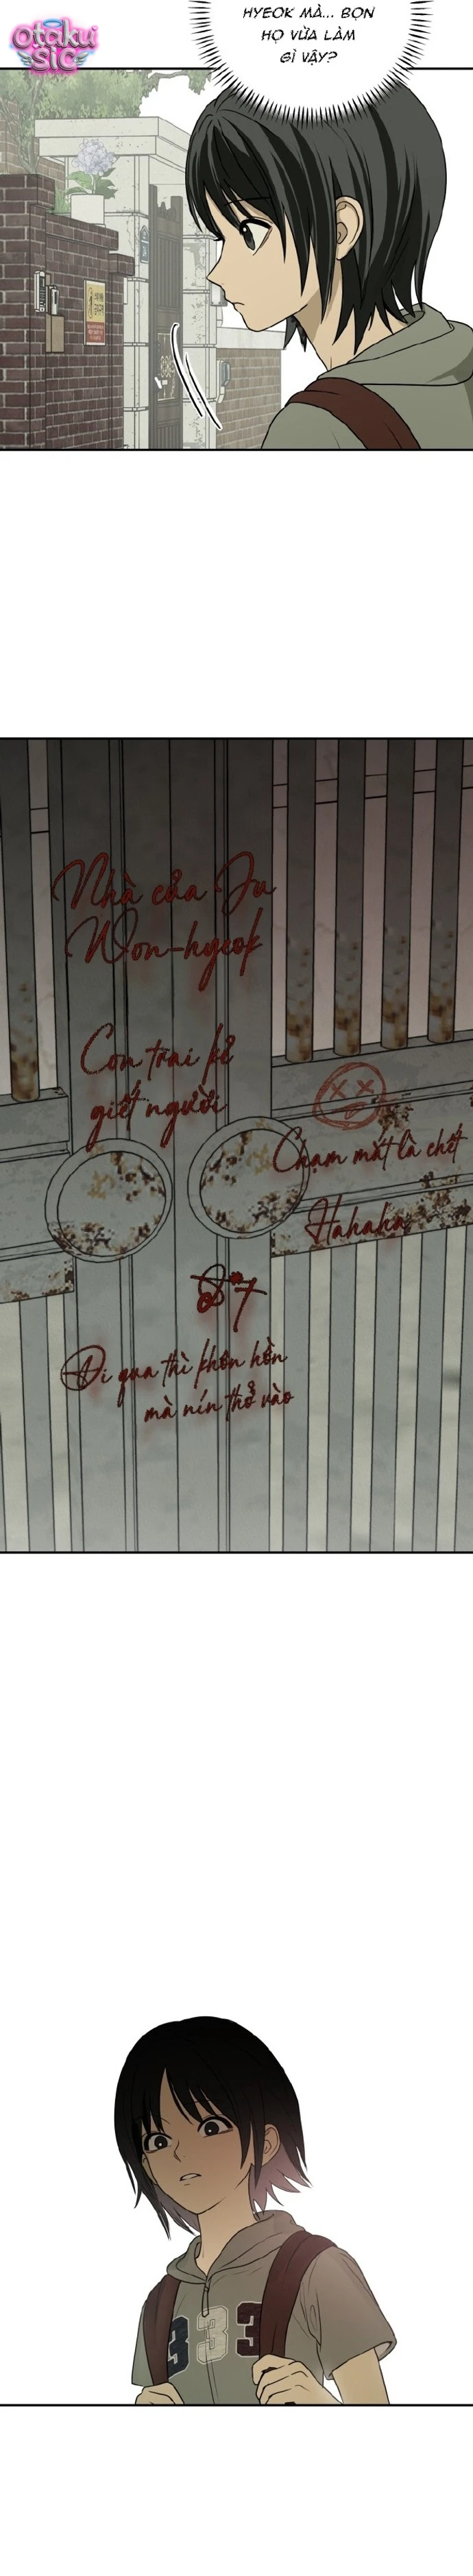 Otaku
SIC
HYEOK MÀ... BỌN
HỌ VỪA LÀM
GÌ VẬY?
Nhà của Ju
Won-hyeok
Con trai kẻ
giết người
Chạm mắt là chết
Hahaha
Đi qua thì khôn hồn
mà nín thở vào
333